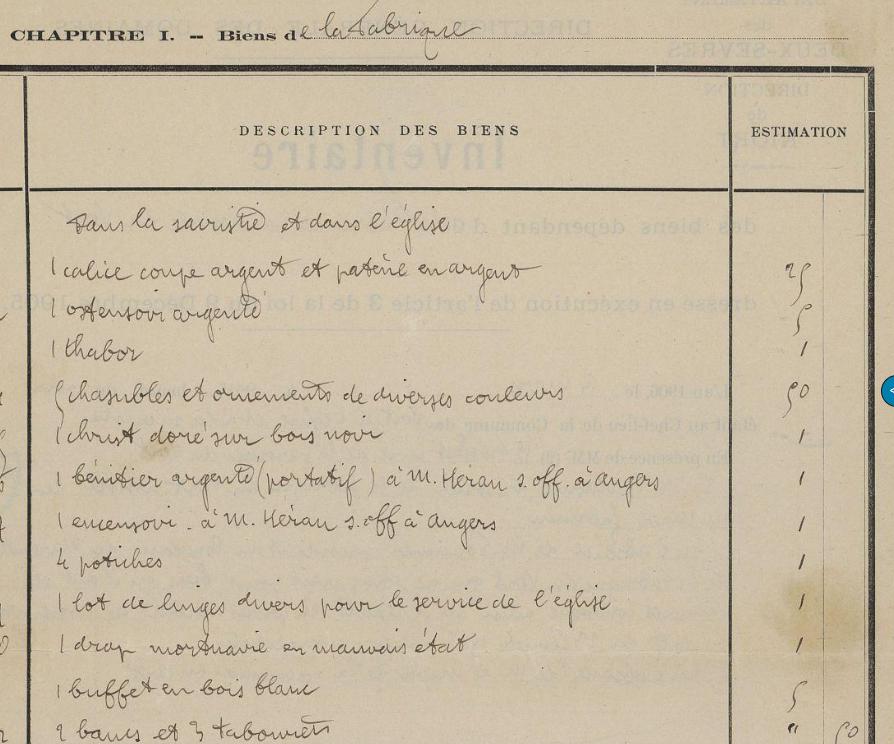 CHAPITRE I. -- Biens de la Fabrique
DESCRIPTION DES BIENS ESTIMATION
Dans la sacristie et dans l'église
1 calice coupe argent et patène en argent 25
1 ostensoir argenté 5
1 thabor 1
5 chasubles et ornements de diverses couleurs 50
1 christ doré sur bois noir 1
1 bénitier argenté (portatif) à M. Héran s. off. à angers 1
1 encensoir. à M. Héran s. off à angers 1
4 potiches 1
1 lot de linges divers pour le service de l'église 1
1 drap mortuaire en mauvais état 1
1 buffet en bois blanc 5
2 bancs et 3 tabourets " 50